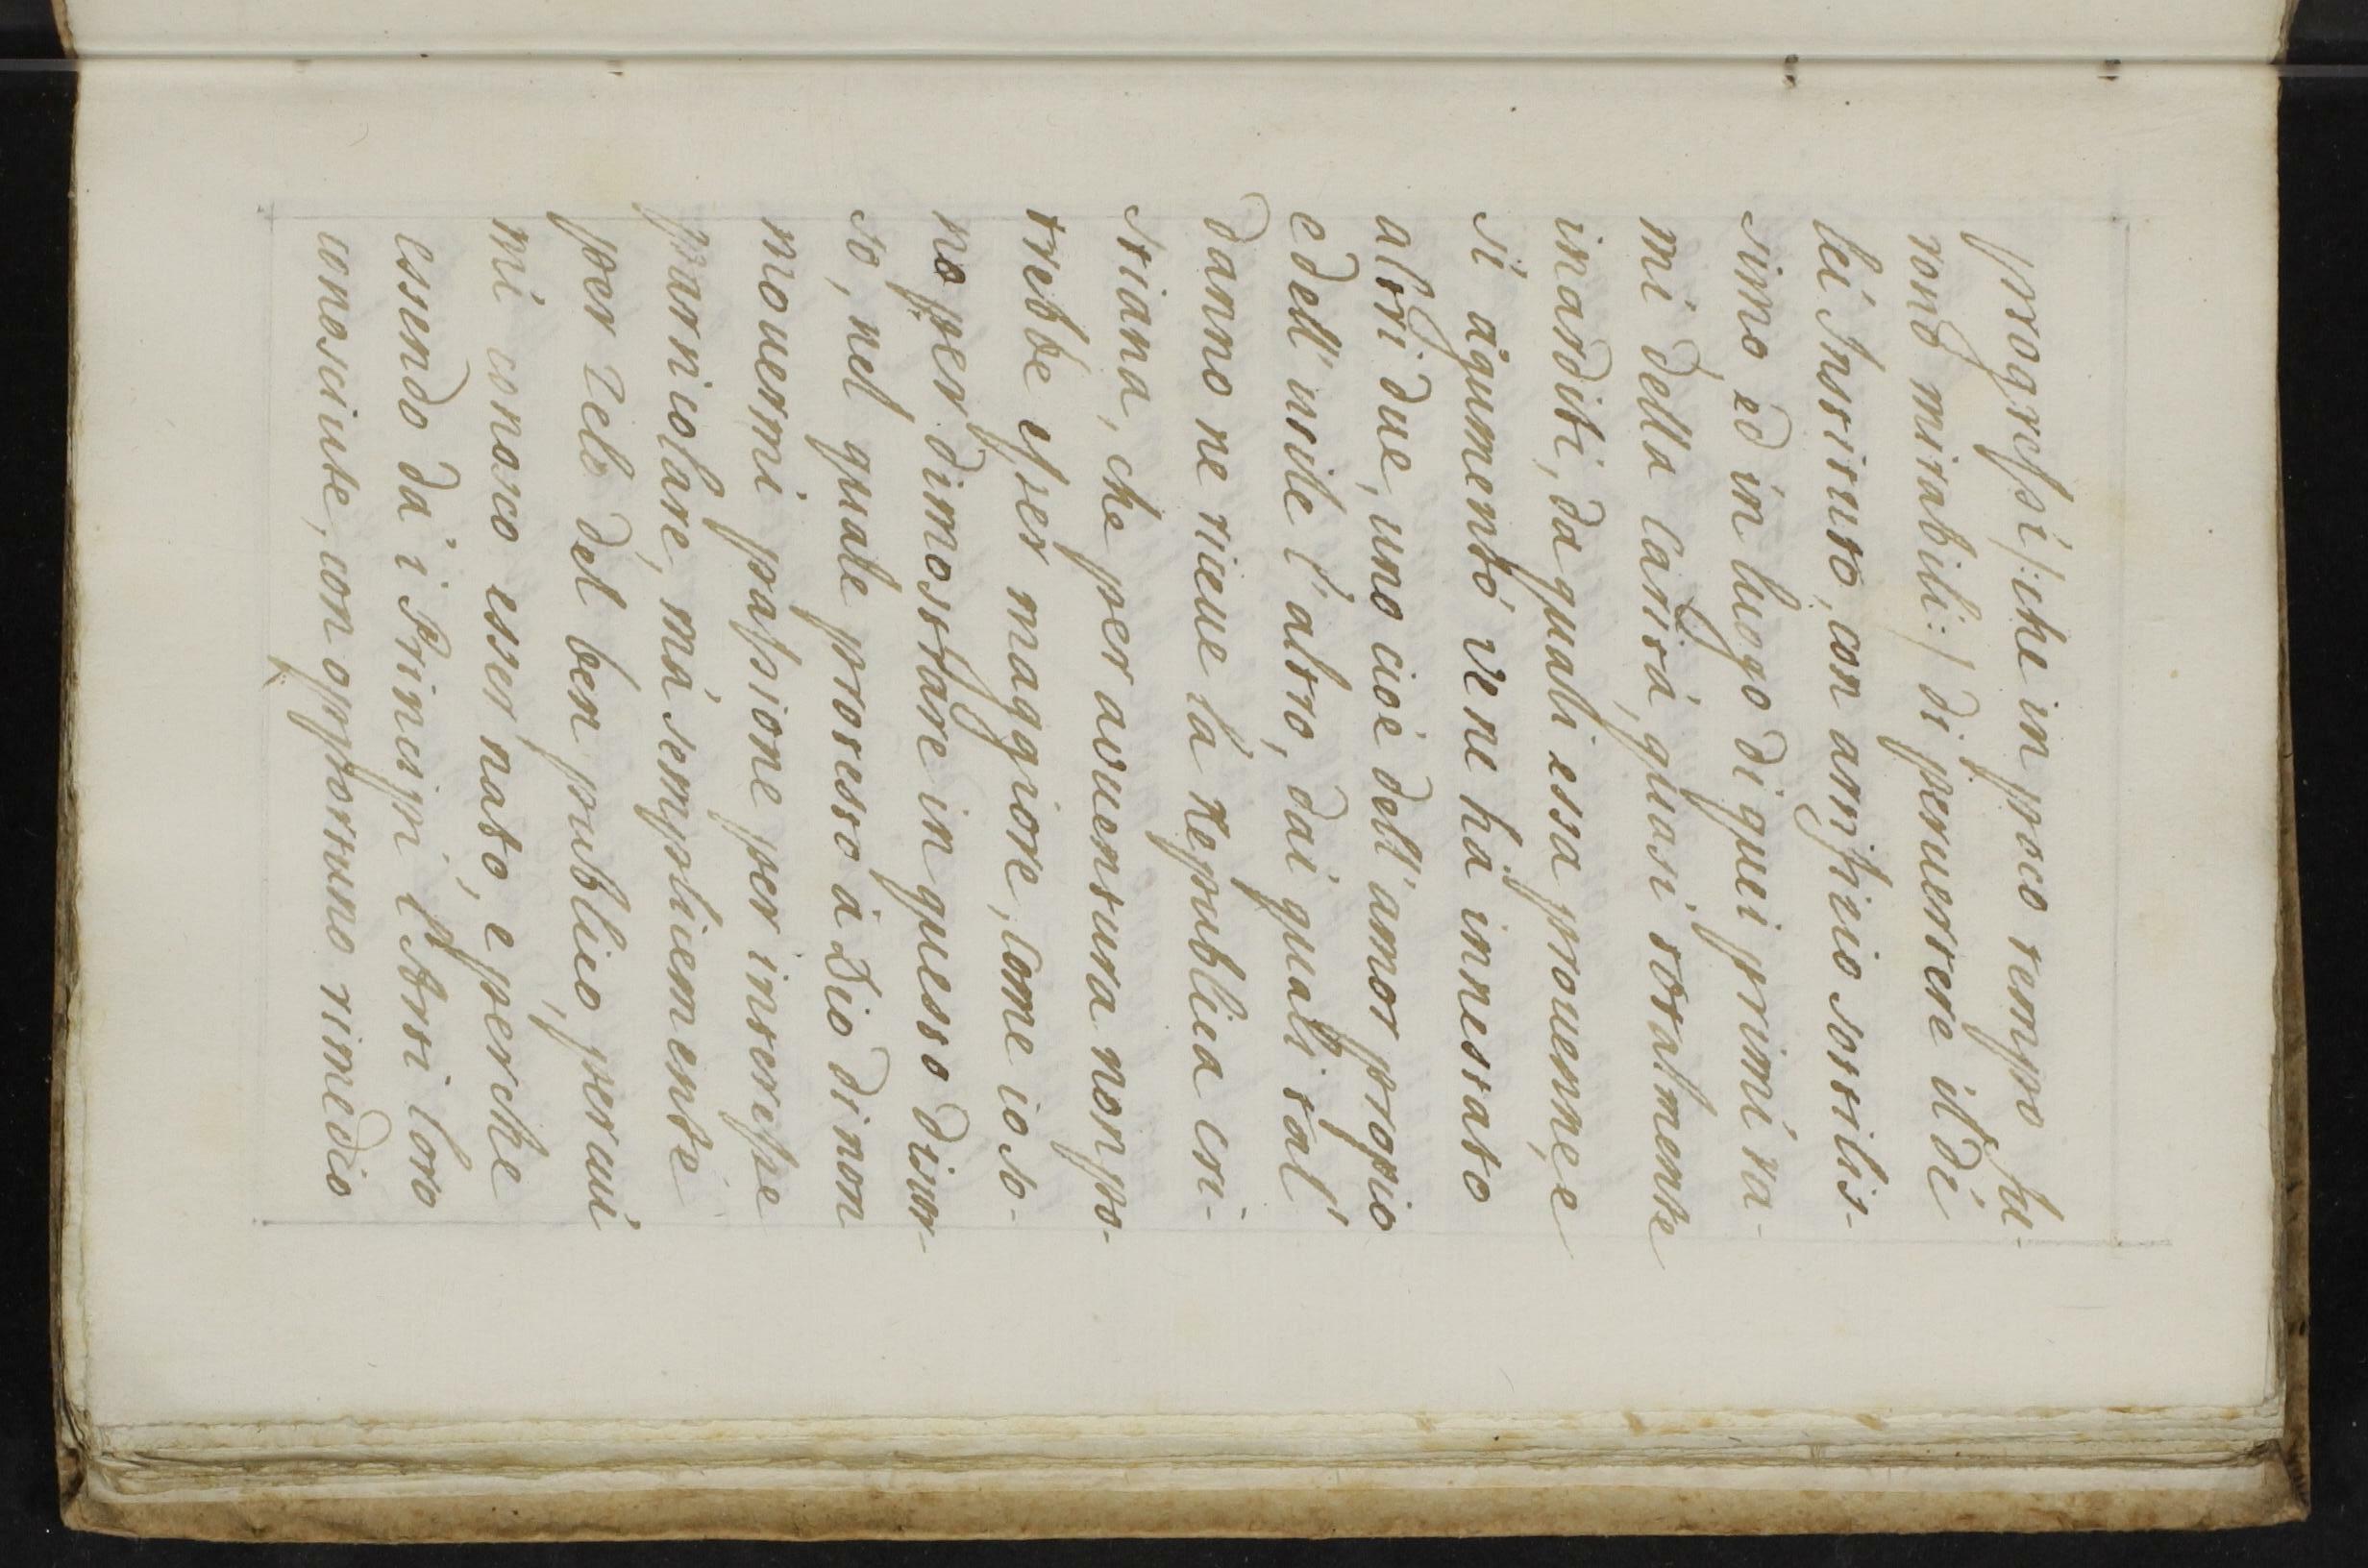 progressi /: che in poco tempo fu-
rono mirabili :/ di peruertere il di
lei Instituto, con artifizio sottilis-
simo, ed in luogo di quei primi ra-
mi della Carità, quasi totalmente
inarditi, da quali essa prouenne, e
si agumentò ve ne hà innestato
altri due, uno cioè dell'amor propio
e dell'utile l'altro, dai quali tal'
danno ne riceue la Republica cri-
stiana, che per avuentura non po-
trebbe esser maggiore, come io so-
no per dimostrare in questo discor-
so, nel quale protesto à Dio di non
mouermi passione per interesse
particolare, mà semplicemente
per zelo del ben publico, per cui
mi conosco esser nato, e perche
essendo da i Principi l'Arti loro
conosciute, con opportuno rimedio